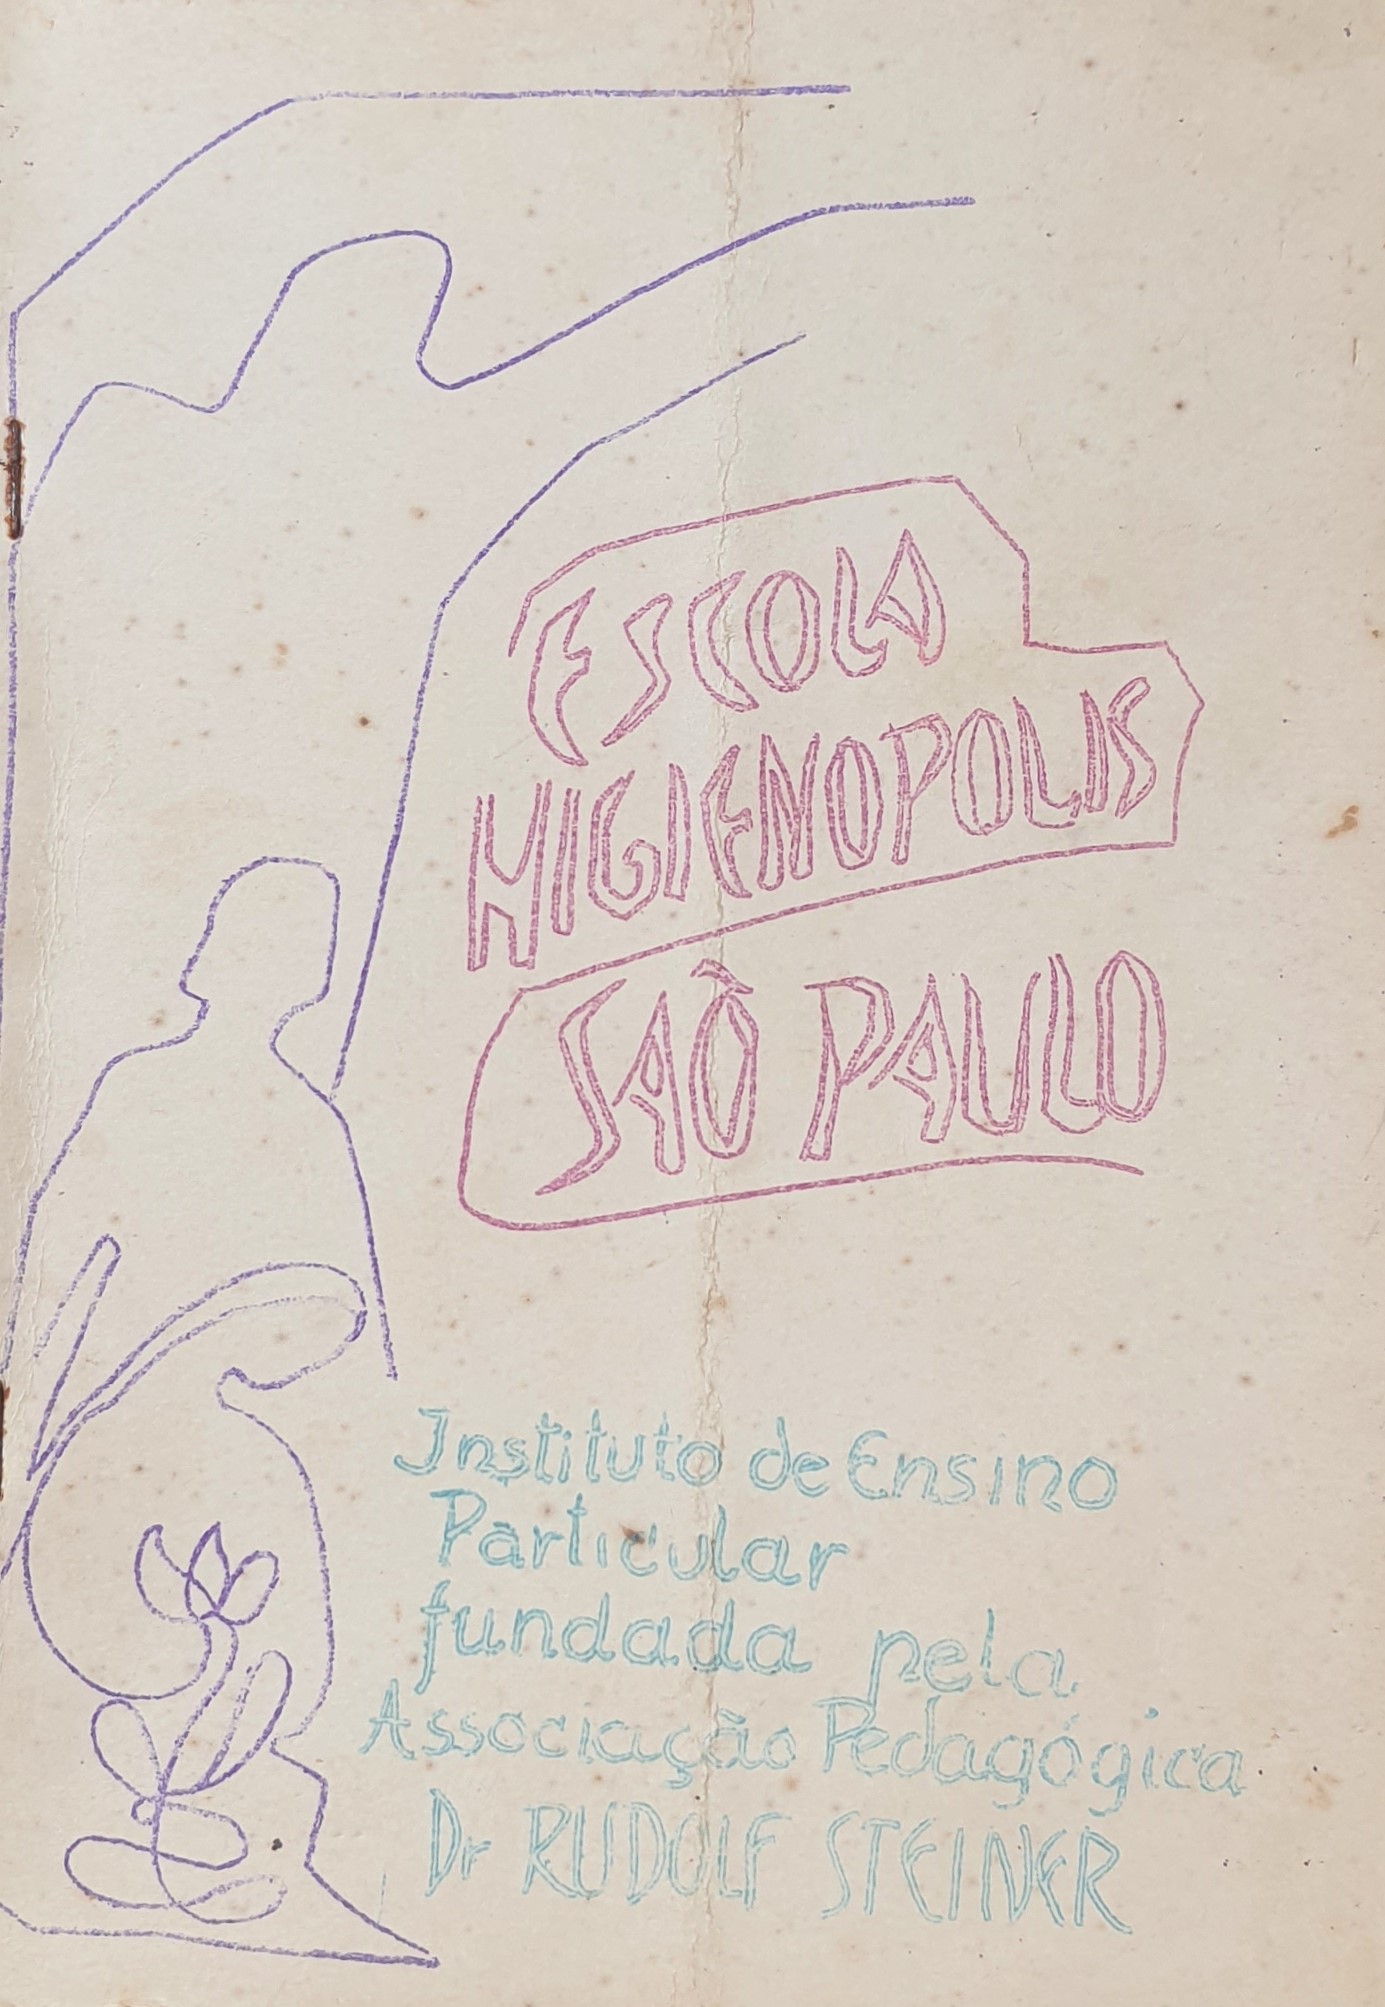 ESCOLA
HIGIENOPOLIS
SAÕ PAULO
Instituto de Ensino
Particular
fundada pela
Associação Pedagógica
Dr RUDOLF STEINER